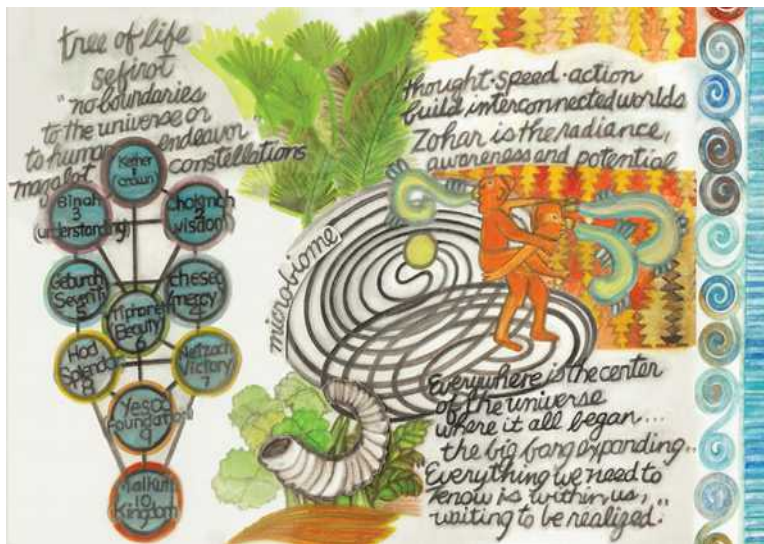 tree of life
sefirot
"no boundaries
to the universe or
to human endeavor"
mazalot constellations
Kether
1
crown
Binah
3
(understanding)
Chokmah
2
wisdom
Geburah
Severity
5
chesed
(mercy)
4
Tiphareth
Beauty
6
Hod
Splendor
8
Netzach
Victory
7
Yesod
Foundation
9
Malkuth
10
Kingdom
microbiome
thought·speed·action
build interconnected worlds
Zohar is the radiance,
awareness and potential
Everywhere is the center
of the universe
where it all began...
the big bang expanding..
"Everything we need to
know is within us,
waiting to be realized."